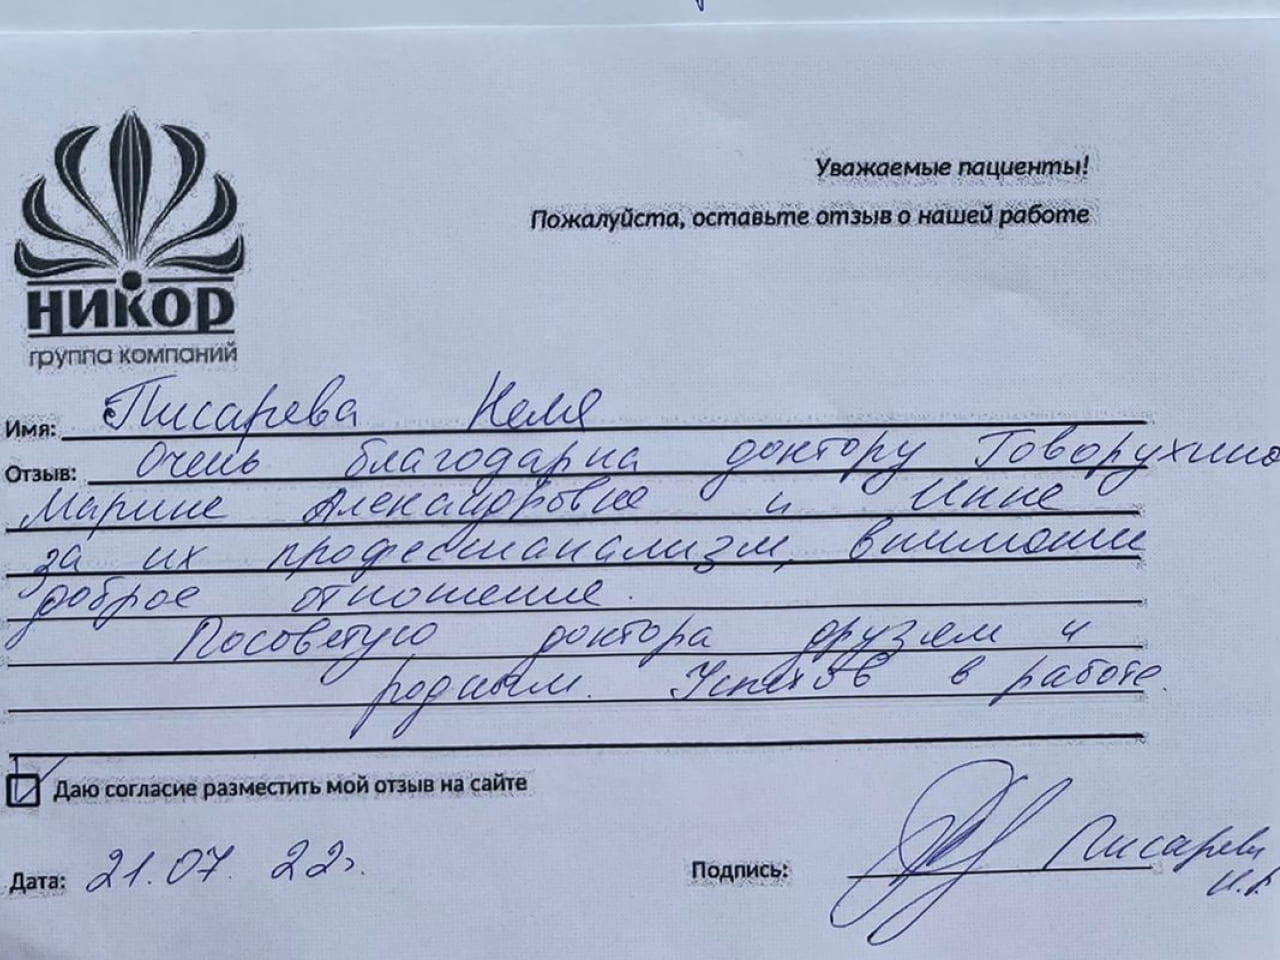 Уважаемые пациенты!
Пожалуйста, оставьте отзыв о нашей работе
НИКОР
группа компаний
Имя: Писарева Неля
Отзыв: Очень благодарна доктору Говорухино
Марине Александровне и Инне
за их професианализм, внимание
доброе отношение.
Посоветую доктора друзям и
родным. Успехов в работе
Даю согласие разместить мой отзыв на сайте
Дата: 21.07.22г.
Подпись: Писарева